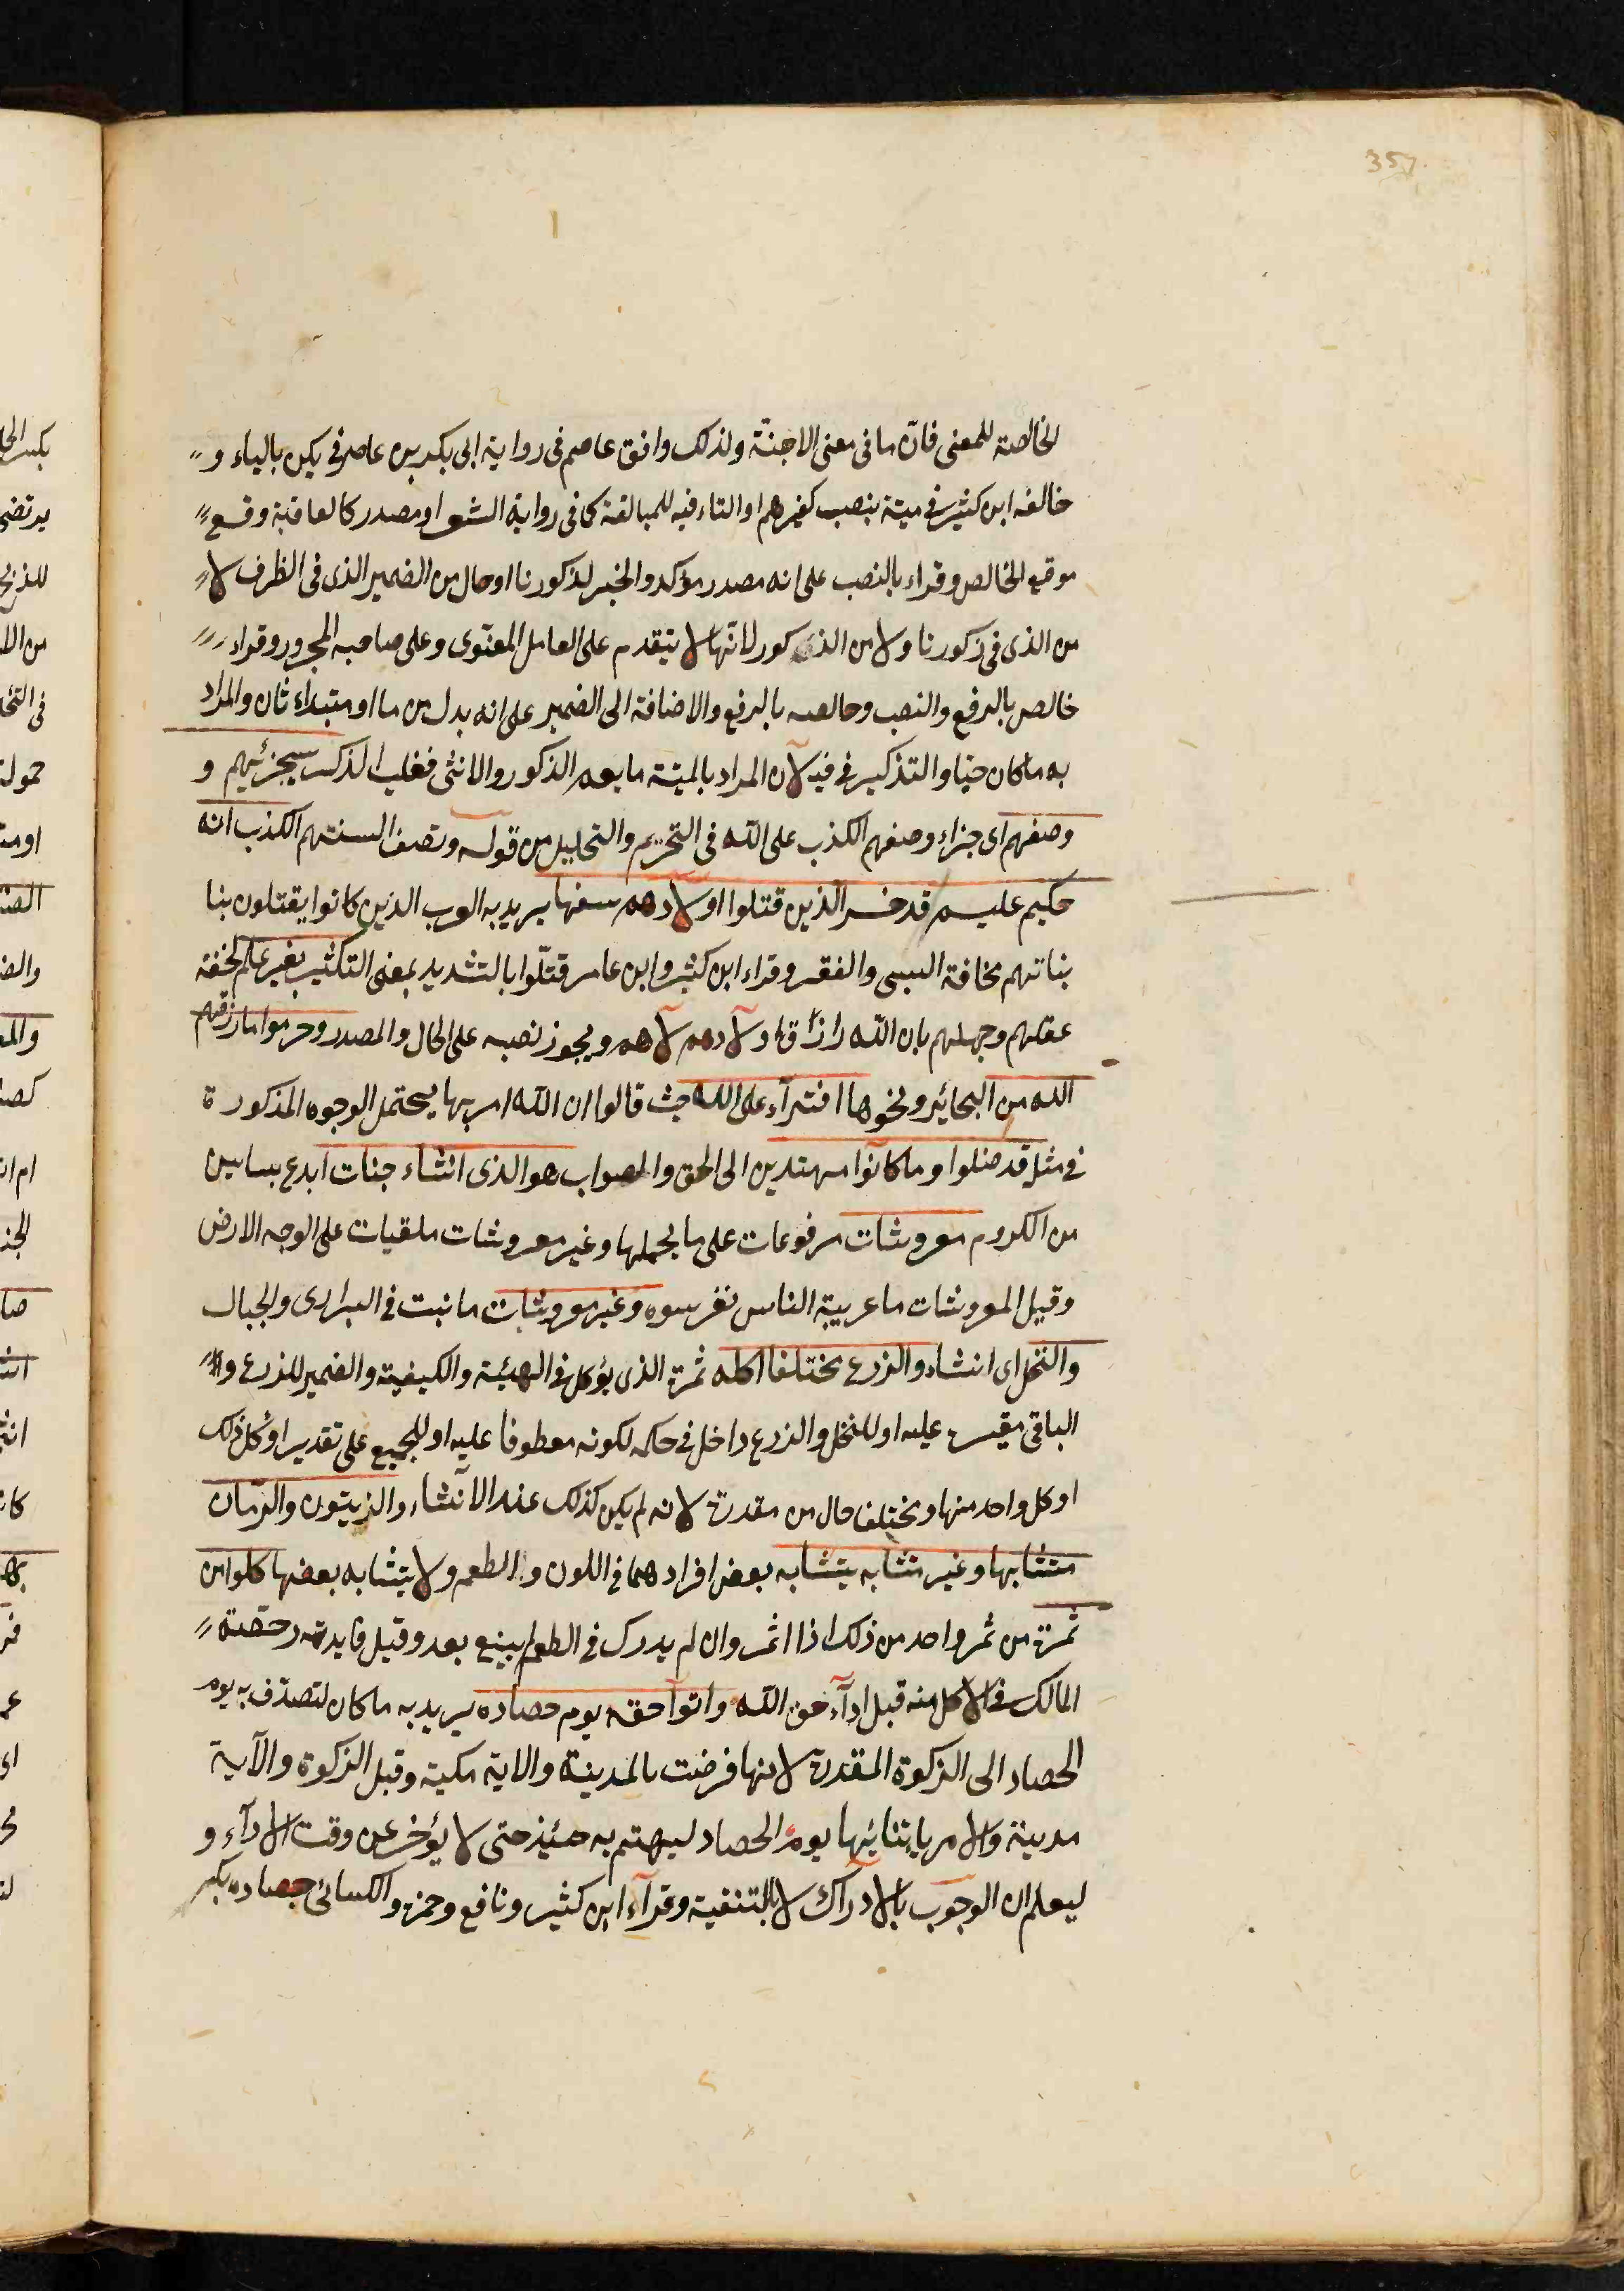 357
الخالصة للمعنى فانّ ما فى معنى الاجنّة ولذلك وافق عاصم فى رواية ابى بكر بن عاصر فى يكن بالياء و
خالفه ابن كثير فى ميتة بنصب كغيرهم او التاء فيه للمبالغة كما فى رواية الشعر او مصدر كالعاقبة وقع
موقع الخالص وقراء بالنصب على انه مصدر مؤكد والخبر لذكورنا او حال من الضمير الذى فى الظرف لا
من الذى فى ذكورنا ولا من الذكور لانّها لا يتقدم على العامل المعنوى وعلى صاحبه المجرور وقراء
خالص بالرفع والنصب وخالصه بالرفع والاضافة الى الضمير على انه بدل من ما او مبتداء ثان والمراد
به ما كان حيّا والتذكير فى فيه لان المراد بالميتة ما يعم الذكور والانثى فغلب الذكر سيجزئيهم و
وصفهم اى جزاء وصفهم الكذب على الله فى التحريم والتحليل من قوله وتصف السنتهم الكذب انه
حكيم عليم قد خسر الذين قتلوا اولادهم سفها يريد به العرب الذين كانوا يقتلون بنا
بناتهم مخافة السبى والفقر وقراء ابن كثير وابن عامر قتّلوا بالتشديد بمعنى التكثير بغير علم لخفة
عقلهم وجهلهم بان الله رازق اولادهم لا هم ويجوز نصبه على الحال والمصدر وحرموا ما رزقهم
الله من البحائر ونحوها افتراء على الله حيث قالوا ان الله امر بها يحتمل الوجوه المذكورة
فى مثل قد ضلوا وما كانوا مهتدين الى الحق والصواب هو الذى انشاء جنات ابدع بساتين
من الكروم معروشات مرفوعات على ما يحملها وغير معروشات ملقيات على الوجه الارض
وقيل المعروشات ما عربية الناس نغرسوه وغير معروشات ما نبت فى البرارى والجبال
والنخل اى انشاء والزرع مختلفا اكله ثمرة الذى يؤكل فى الهيئة والكيفية والضمير للزرع و
الباقى مقيس عليه او للنخل والزرع داخل فى حكمه لكونه معطوفا عليه او للجميع على تقدير او كل ذلك
او كل واحد منها ومختلفا حال من مقدرة لانه لم يكن كذلك عند الانشاء والزيتون والرمان
متشابها وغير متشابه يتشابه بعض افرادهما فى اللون والطعم ولا يتشابه بعضها كلوا من
ثمرة من ثمر واحد من ذلك اذا اثمر وان لم يدرك فى الطعام يينع بعد وقيل فايدته رخصة
المالك فى الاكل منه قبل اداء حق الله واتوا حقه يوم حصاده يريد به ما كان لتصدّق به يوم
الحصاد الى الزكوة المقدرة لانها فرضت بالمدينة والاية مكية وقيل الزكوة والآية
مدينة والامر بايتائها يوم الحصاد ليهتم به حينئذ حتى لا يؤخر عن وقت الاداء و
ليعلم ان الوجوب بالادراك لا بالتنقية وقراء ابن كثير ونافع وحمزة والكسائى حصاده بكسر